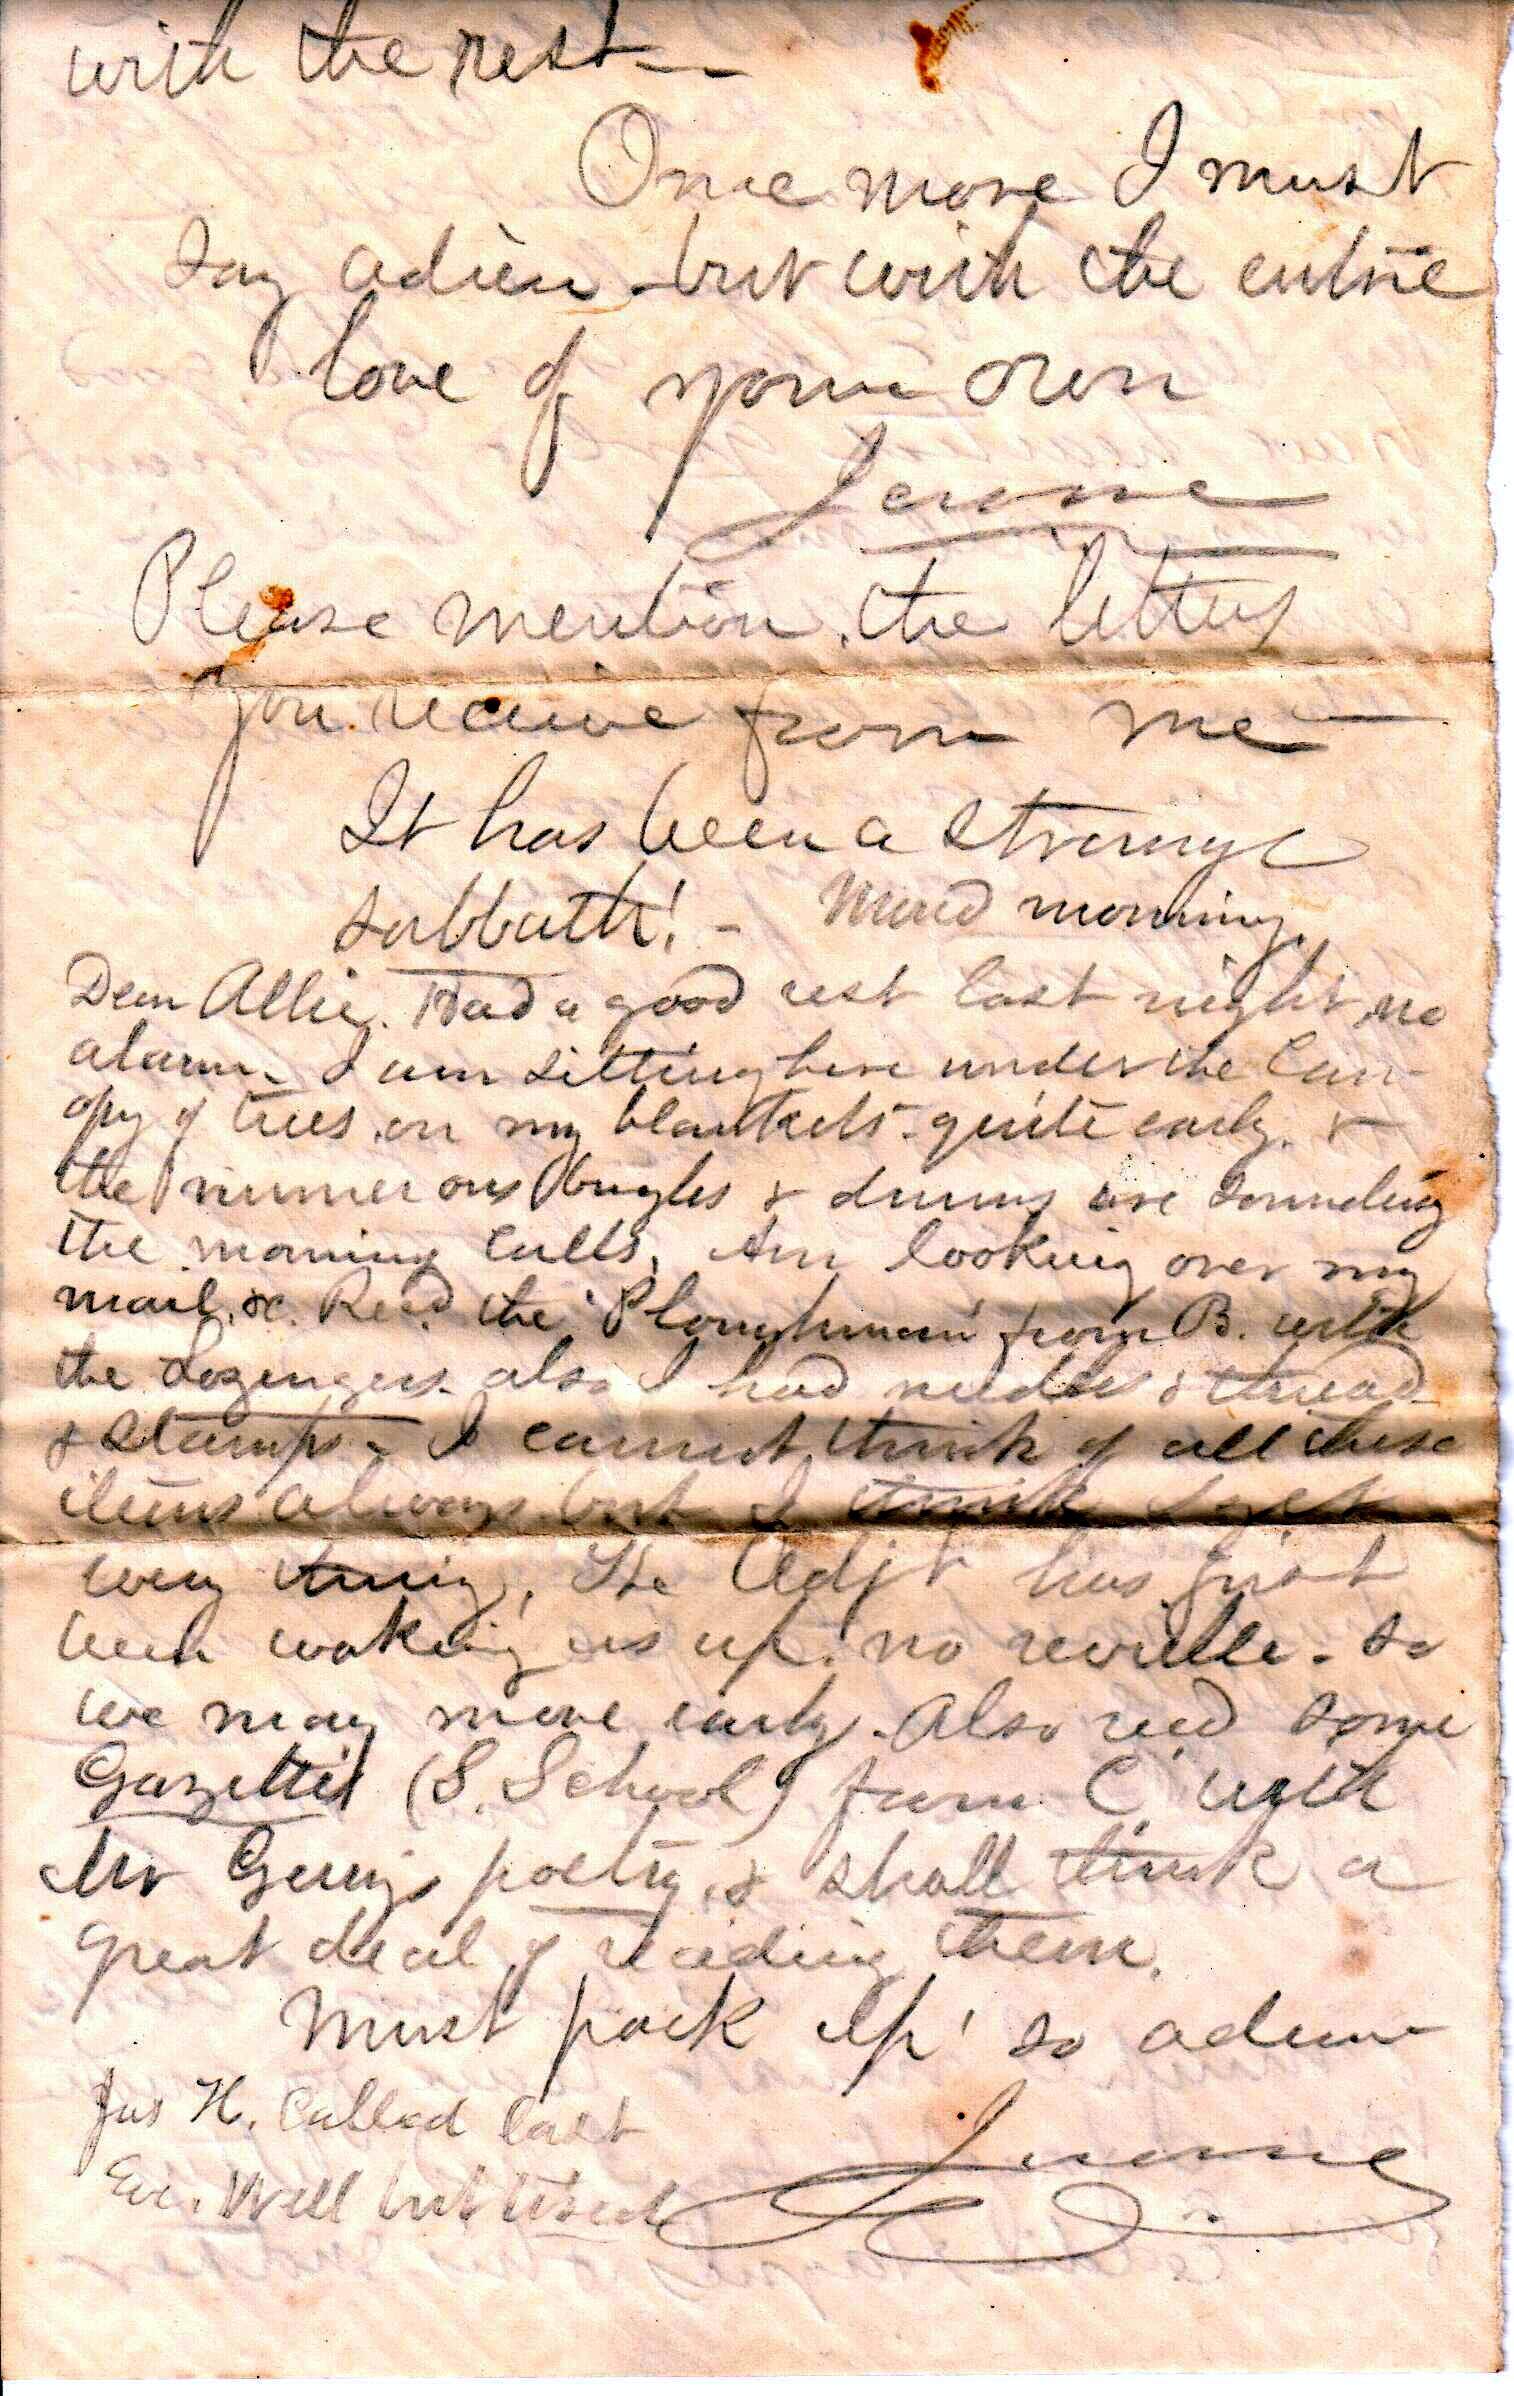 with the rest —
Once more I must
say adieu - but with the entire
love of your own
Jerome
Please mention the letters
you receive from me —
It has been a strange
sabbath! - Mond morning.
Dear Allie. Had a good rest last night, no
alarm - I am sitting here under the can-
opy of trees, on my blankets - quite early. &
the numerous bugles & drums are sounding
the morning calls. Am looking over my
mail, &c. Recd. the "Ploughman" from B. with
the Lozengers. also I had needles & thread
& stamps - I cannot think of all these
items always but I think I get
every thing. The Adjt has just
been waking us up. no reveille - so
we may move early. Also recd some
Gazettes (S. School) from C. with
Mr poetry, & shall think a
great deal of reading them.
Must pack up! so adieu
Jas H. Called last
Eve. Well but tired
Jerome